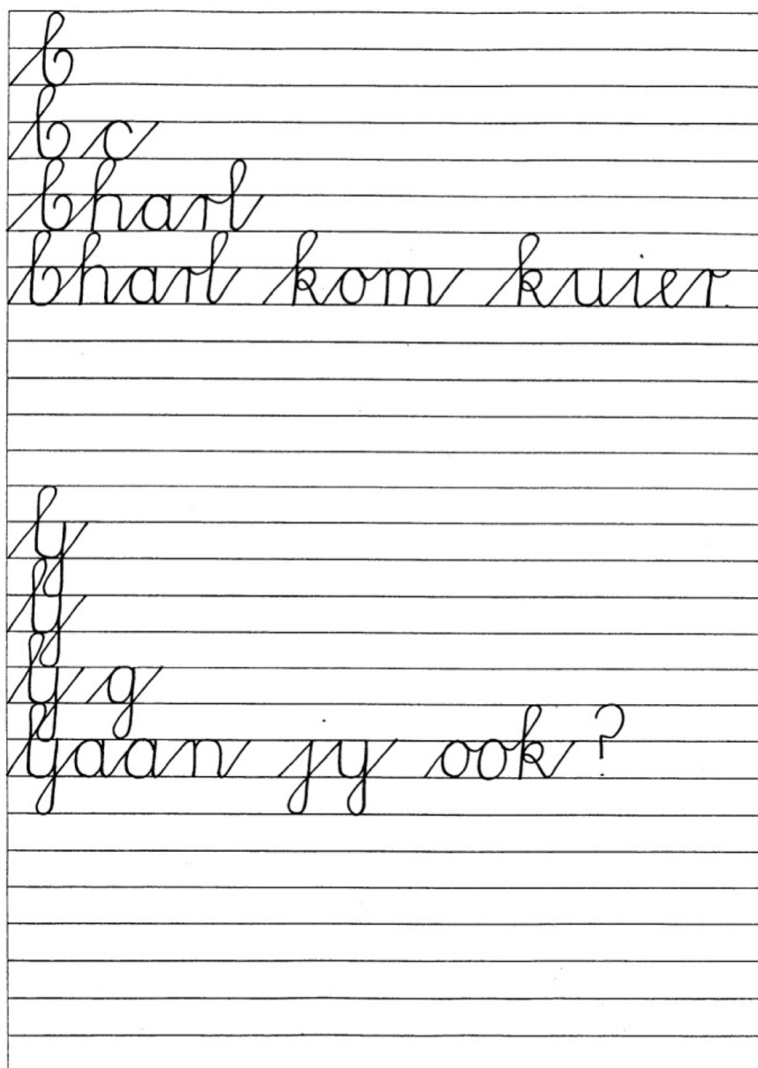 C
C c
Charl
Charl kom kuier.
G
G
G g
Gaan jy ook?